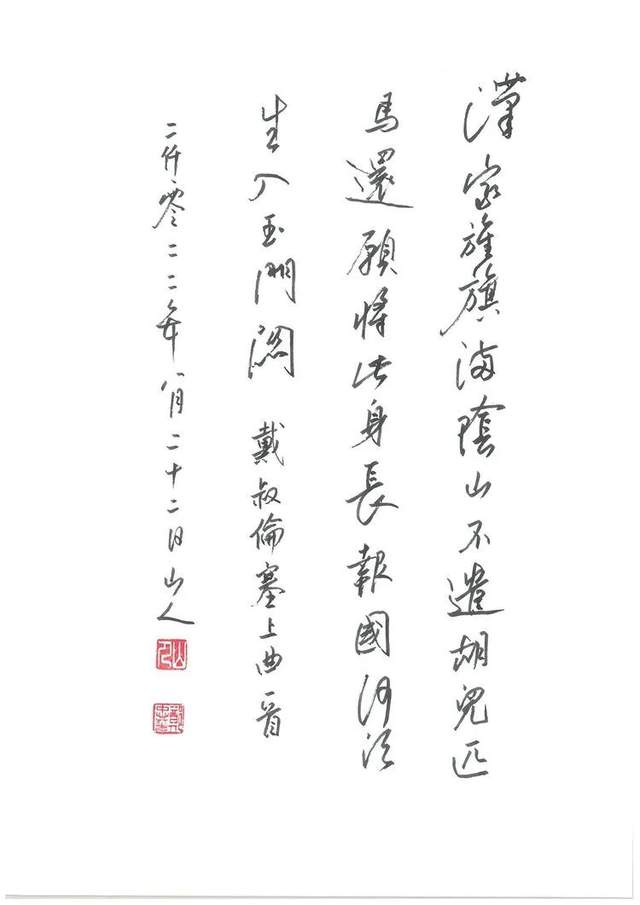 漢家旌旗滿陰山不遣胡兒匹
馬還願將此身長報國何須
生入玉門關 戴叔倫塞上曲一首
二仟零二二年八月二十二日山人
山人